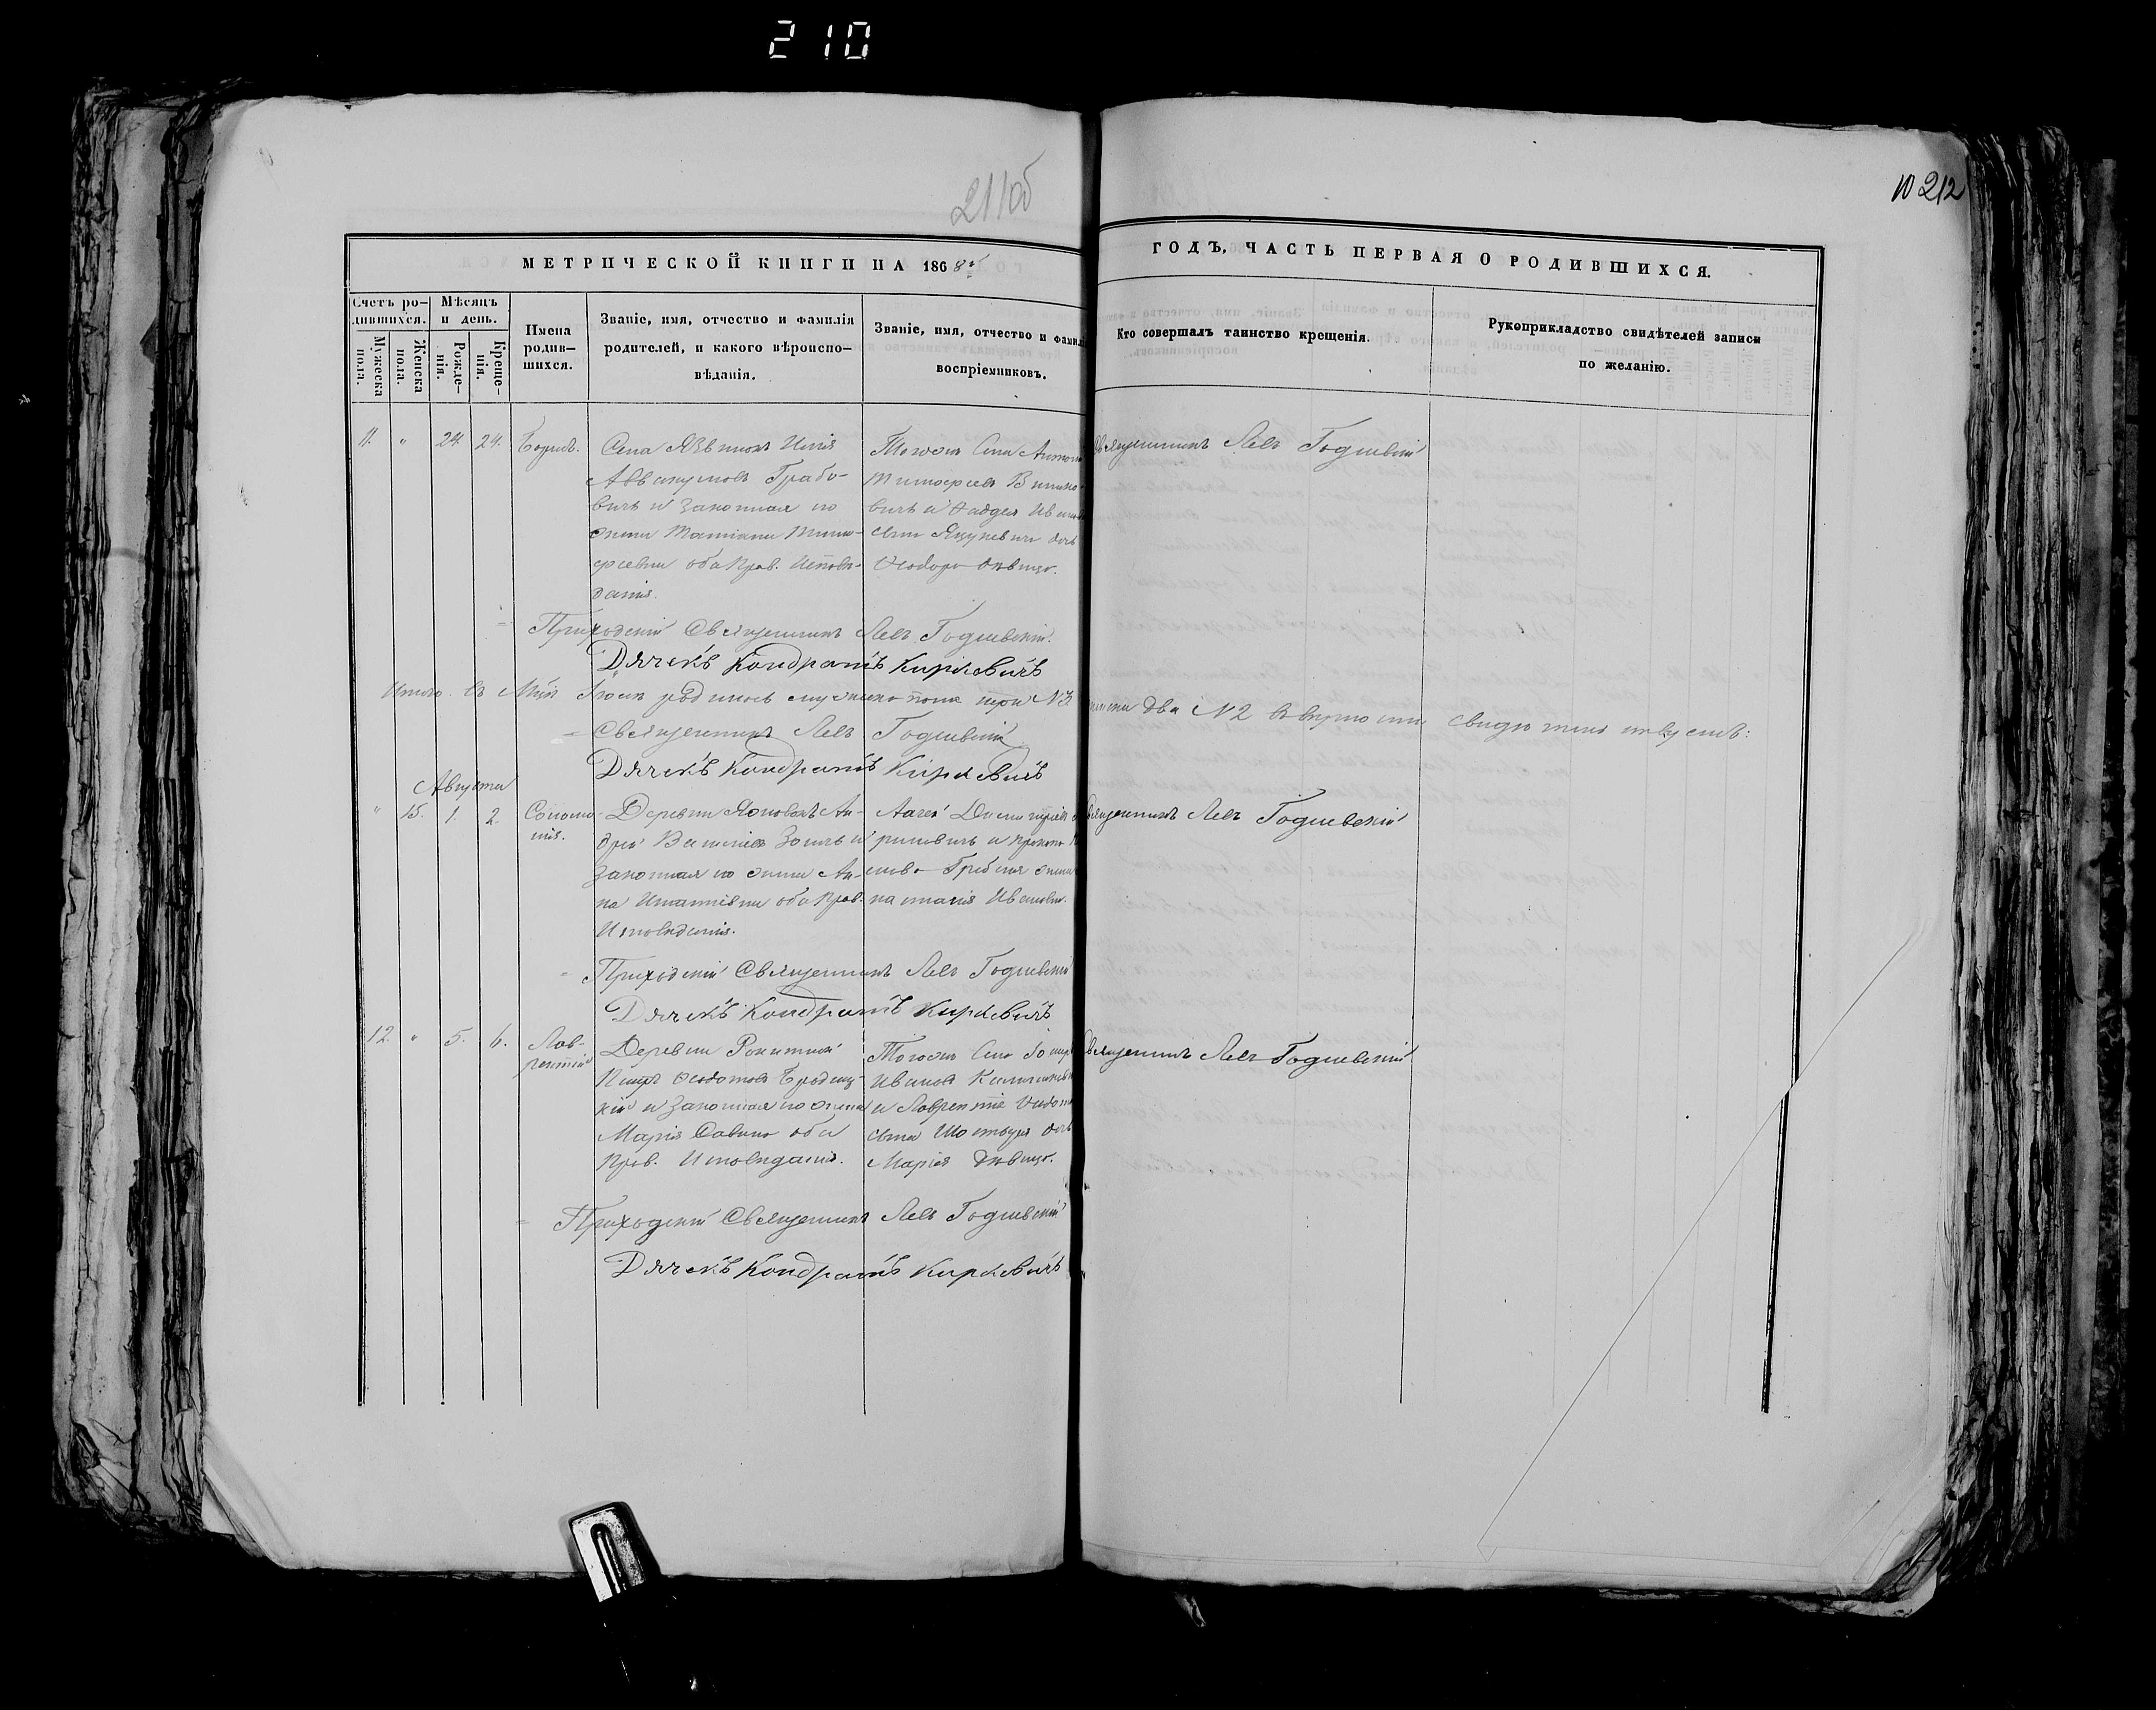 210
211об
10 212
МЕТРИЧЕСКОЙ КНИГИ НА 1868й
ГОДЪ, ЧАСТЬ ПЕРВАЯ О РОДИВШИХСЯ.
Счетъ ро-
дившихся.
Мужеска
пола.
Женска
пола.
Мѣсяцъ
и день.
Рожде-
нія.
Креще-
нія.
Имена
родив-
шихся.
Званіе, имя, отчество и фамилія
родителей, и какого вѣроиспо-
вѣданія.
Званіе, имя, отчество и фамилі
воспріемниковъ.
Кто совершалъ таинство крещенія.
Рукоприкладство свидѣтелей записи
по желанію.
11. " 24. 24. Борисъ.
Села Язвинокъ Илія
Аввакумовъ Грабо-
вичъ и законная его
жена Татіана Тимо-
феевна оба Прав. Исповѣ-
данія.
Тогожъ Села Антоній
Тимофеевъ
вичъ и Фаддея Иванова
Яцукевича дочь
Ѳеодора дѣвица.
Священникъ Левъ Годлевскій
Приходскій Священникъ Левъ Годлевскій.
Дячекъ Кондратъ Киркевичъ
Итого. Въ Іюлѣ родилось мужеска пола три №3
два №2
Священникъ Левъ Годлевскій
Дячекъ Кондратъ Киркевичъ
Августа
" 15. 1. 2. Соломо-
нія.
Деревни Яновокъ Ан-
дрей Василіевъ и
законная его жена Ан-
на Игнатіевна оба Прав.
Исповѣданія.
Алексѣй
жена
Наталія Ивановна.
Священникъ Левъ Годлевскій
Приходскій Священникъ Левъ Годлевскій
Дячекъ Кондратъ Киркевичъ
12. " 5. 6. Лав-
рентій
Деревни
Петръ Ѳеодотовъ Бродниц-
кій и законная его жена
Марія Савина оба
Прав. Исповѣданія.
Тогожъ Села
Ивановъ
и Лаврентія
дочь
Марія дѣвица.
Священникъ Левъ Годлевскій
Приходскій Священникъ Левъ Годлевскій
Дячекъ Кондратъ Киркевичъ